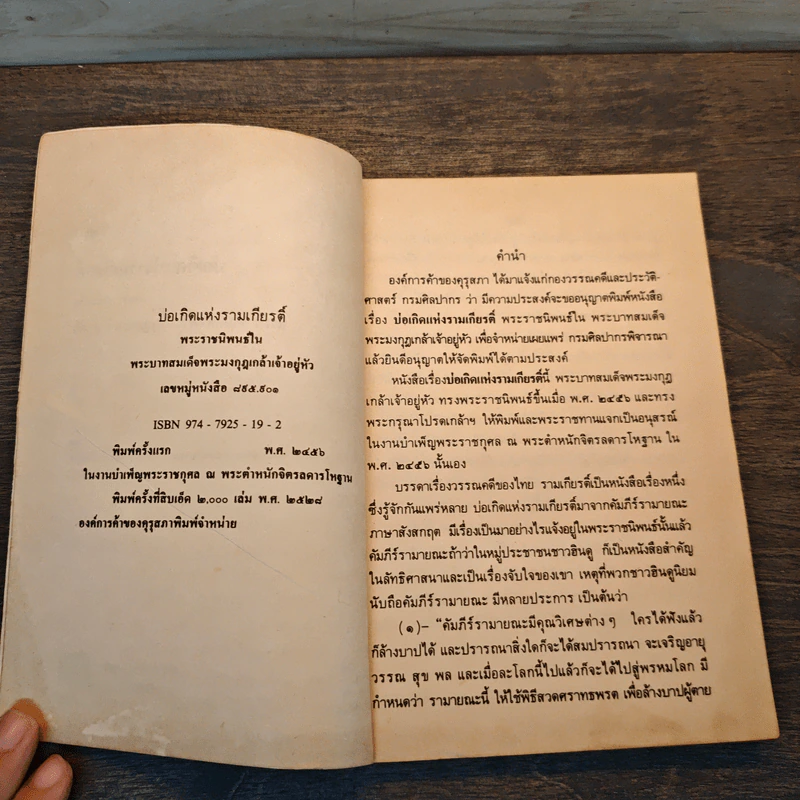 บ่อเกิดแห่งรามเกียรติ์
พระราชนิพนธ์ใน
พระบาทสมเด็จพระมงกุฎเกล้าเจ้าอยู่หัว
เลขหมู่หนังสือ ๘๙๕.๙๐๑
ISBN 974 - 7925 - 19 - 2
พิมพ์ครั้งแรก พ.ศ. ๒๔๕๖
ในงานบำเพ็ญพระราชกุศล ณ พระตำหนักจิตรลดารโหฐาน
พิมพ์ครั้งที่สิบเอ็ด ๒,๐๐๐ เล่ม พ.ศ. ๒๕๒๘
องค์การค้าของคุรุสภาพิมพ์จำหน่าย
คำนำ
องค์การค้าของคุรุสภา ได้มาแจ้งแก่กองวรรณคดีและประวัติ-
ศาสตร์ กรมศิลปากร ว่า มีความประสงค์จะขออนุญาตพิมพ์หนังสือ
เรื่อง บ่อเกิดแห่งรามเกียรติ์ พระราชนิพนธ์ใน พระบาทสมเด็จ
พระมงกุฎเกล้าเจ้าอยู่หัว เพื่อจำหน่ายเผยแพร่ กรมศิลปากรพิจารณา
แล้วยินดีอนุญาตให้จัดพิมพ์ได้ตามประสงค์
หนังสือเรื่องบ่อเกิดแห่งรามเกียรติ์นี้ พระบาทสมเด็จพระมงกุฎ
เกล้าเจ้าอยู่หัว ทรงพระราชนิพนธ์ขึ้นเมื่อ พ.ศ. ๒๔๕๖ และทรง
พระกรุณาโปรดเกล้าฯ ให้พิมพ์และพระราชทานแจกเป็นอนุสรณ์
ในงานบำเพ็ญพระราชกุศล ณ พระตำหนักจิตรลดารโหฐาน ใน
พ.ศ. ๒๔๕๖ นั้นเอง
บรรดาเรื่องวรรณคดีของไทย รามเกียรติ์เป็นหนังสือเรื่องหนึ่ง
ซึ่งรู้จักกันแพร่หลาย บ่อเกิดแห่งรามเกียรติ์มาจากคัมภีร์รามายณะ
ภาษาสังสกฤต มีเรื่องเป็นมาอย่างไรแจ้งอยู่ในพระราชนิพนธ์นั้นแล้ว
คัมภีร์รามายณะถ้าว่าในหมู่ประชาชนชาวฮินดู ก็เป็นหนังสือสำคัญ
ในลัทธิศาสนาและเป็นเรื่องจับใจของเขา เหตุที่พวกชาวฮินดูนิยม
นับถือคัมภีร์รามายณะ มีหลายประการ เป็นต้นว่า
(๑)- "คัมภีร์รามายณะมีคุณวิเศษต่าง ๆ ใครได้ฟังแล้ว
ก็ล้างบาปได้ และปรารถนาสิ่งใดก็จะได้สมปรารถนา จะเจริญอายุ
วรรณ สุข พล และเมื่อละโลกนี้ไปแล้วก็จะได้ไปสู่พรหมโลก มี
กำหนดว่า รามายณะนี้ ให้ใช้พิธีสวดศราทธพรต เพื่อล้างบาปผู้ตาย